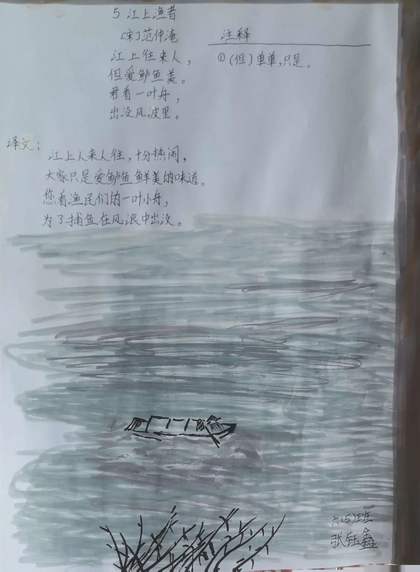 5 江上渔者
(宋)范仲淹
江上往来人，
但爱鲈鱼美。
君看一叶舟，
出没风波里。
注释
①(但)单单，只是。
译文：
江上人来人往，十分热闹，
大家只是爱鲈鱼鲜美的味道。
您看渔民们的一叶小舟，
为了捕鱼在风浪中出没。